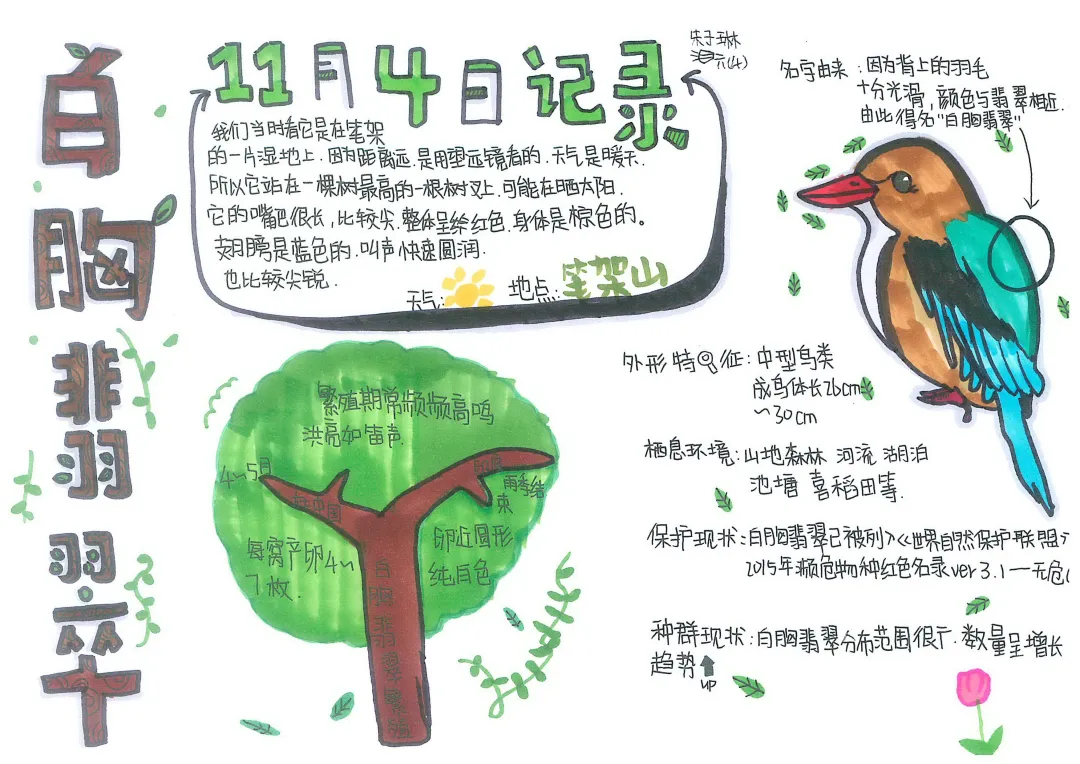 白胸翡翠
11月4日记录
我们当时看它是在笔架
的一片湿地上.因为距离远.是用望远镜看的.天气是暖天.
所以它站在一棵树最高的一根树叉上.可能在晒太阳.
它的嘴吧很长,比较尖.整体呈给红色.身体是棕色的。
翅膀是蓝色的.叫声快速圆润.
也比较尖锐.
天气:
地点:笔架山
名字由来:因为背上的羽毛
十分光滑,颜色与翡翠相近.
由此得名"白胸翡翠"
外形特征:中型鸟类
成鸟体长26cm
~30cm
栖息环境:山地森林 河流 湖泊
池塘 喜稻田等.
保护现状:白胸翡翠已被列入《世界自然保护联盟》
2015年濒危物种红色名录ver3.1—无危
种群现状:白胸翡翠分布范围很广.数量呈增长
趋势
UP
繁殖期常频频高鸣
洪亮如笛声.
4~5月
在中国
雨季结
束
每窝产卵4~
7枚.
卵近圆形
纯白色
白胸翡翠繁殖